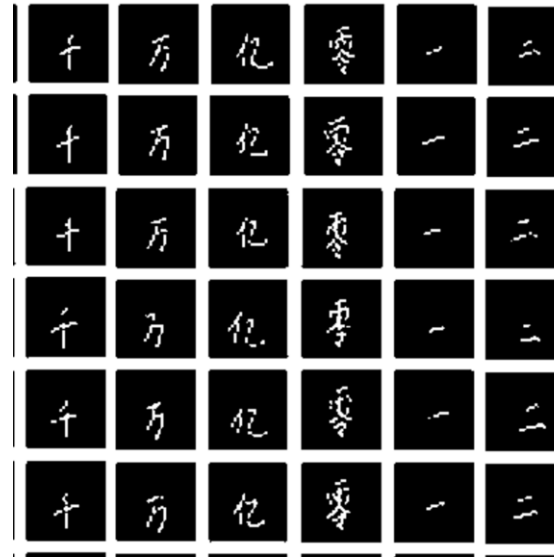 千 万 亿 零 一 二
千 万 亿 零 一 二
千 万 亿 零 一 二
千 万 亿 零 一 二
千 万 亿 零 一 二
千 万 亿 零 一 二